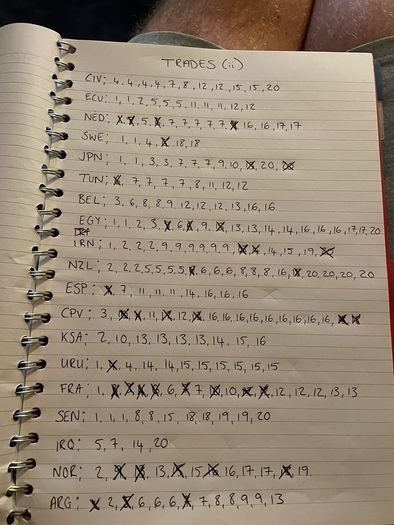 TRADES (ii)
CIV: 4, 4, 4, 4, 7, 8, 12, 12, 15, 15, 20
ECU: 1, 1, 2, 5, 5, 5, 11, 11, 11, 12, 12
NED: 5, 7, 7, 7, 7, 7, 16, 16, 17, 17
SWE: 1, 1, 4, 18, 18
JPN: 1, 1, 3, 3, 7, 7, 7, 9, 10, 20,
TUN: 7, 7, 7, 7, 8, 11, 12, 12
BEL: 3, 6, 8, 8, 9, 12, 12, 12, 13, 16, 16
EGY: 1, 1, 2, 3, 6, 9, 13, 13, 14, 14, 16, 16, 16, 17, 17, 20
IRN: 1, 2, 2, 2, 9, 9, 9, 9, 9, 14, 15, 19,
NZL: 2, 2, 2, 5, 5, 5, 5, 6, 6, 6, 8, 8, 8, 16, 20, 20, 20, 20
ESP: 7, 11, 11, 11, 14, 16, 16, 16
CPV: 3, 11, 12, 16, 16, 16, 16, 16, 16, 16, 16, 16,
KSA: 2, 10, 13, 13, 13, 13, 14, 15, 16
URU: 1, 4, 14, 14, 15, 15, 15, 15, 15, 15
FRA: 1, 6, 7, 10, 12, 12, 12, 13, 13
SEN: 1, 1, 1, 8, 8, 15, 18, 18, 19, 19, 20
IRQ: 5, 7, 14, 20
NOR: 2, 13, 15, 16, 17, 17, 19
ARG: 2, 6, 6, 6, 7, 8, 8, 9, 9, 13